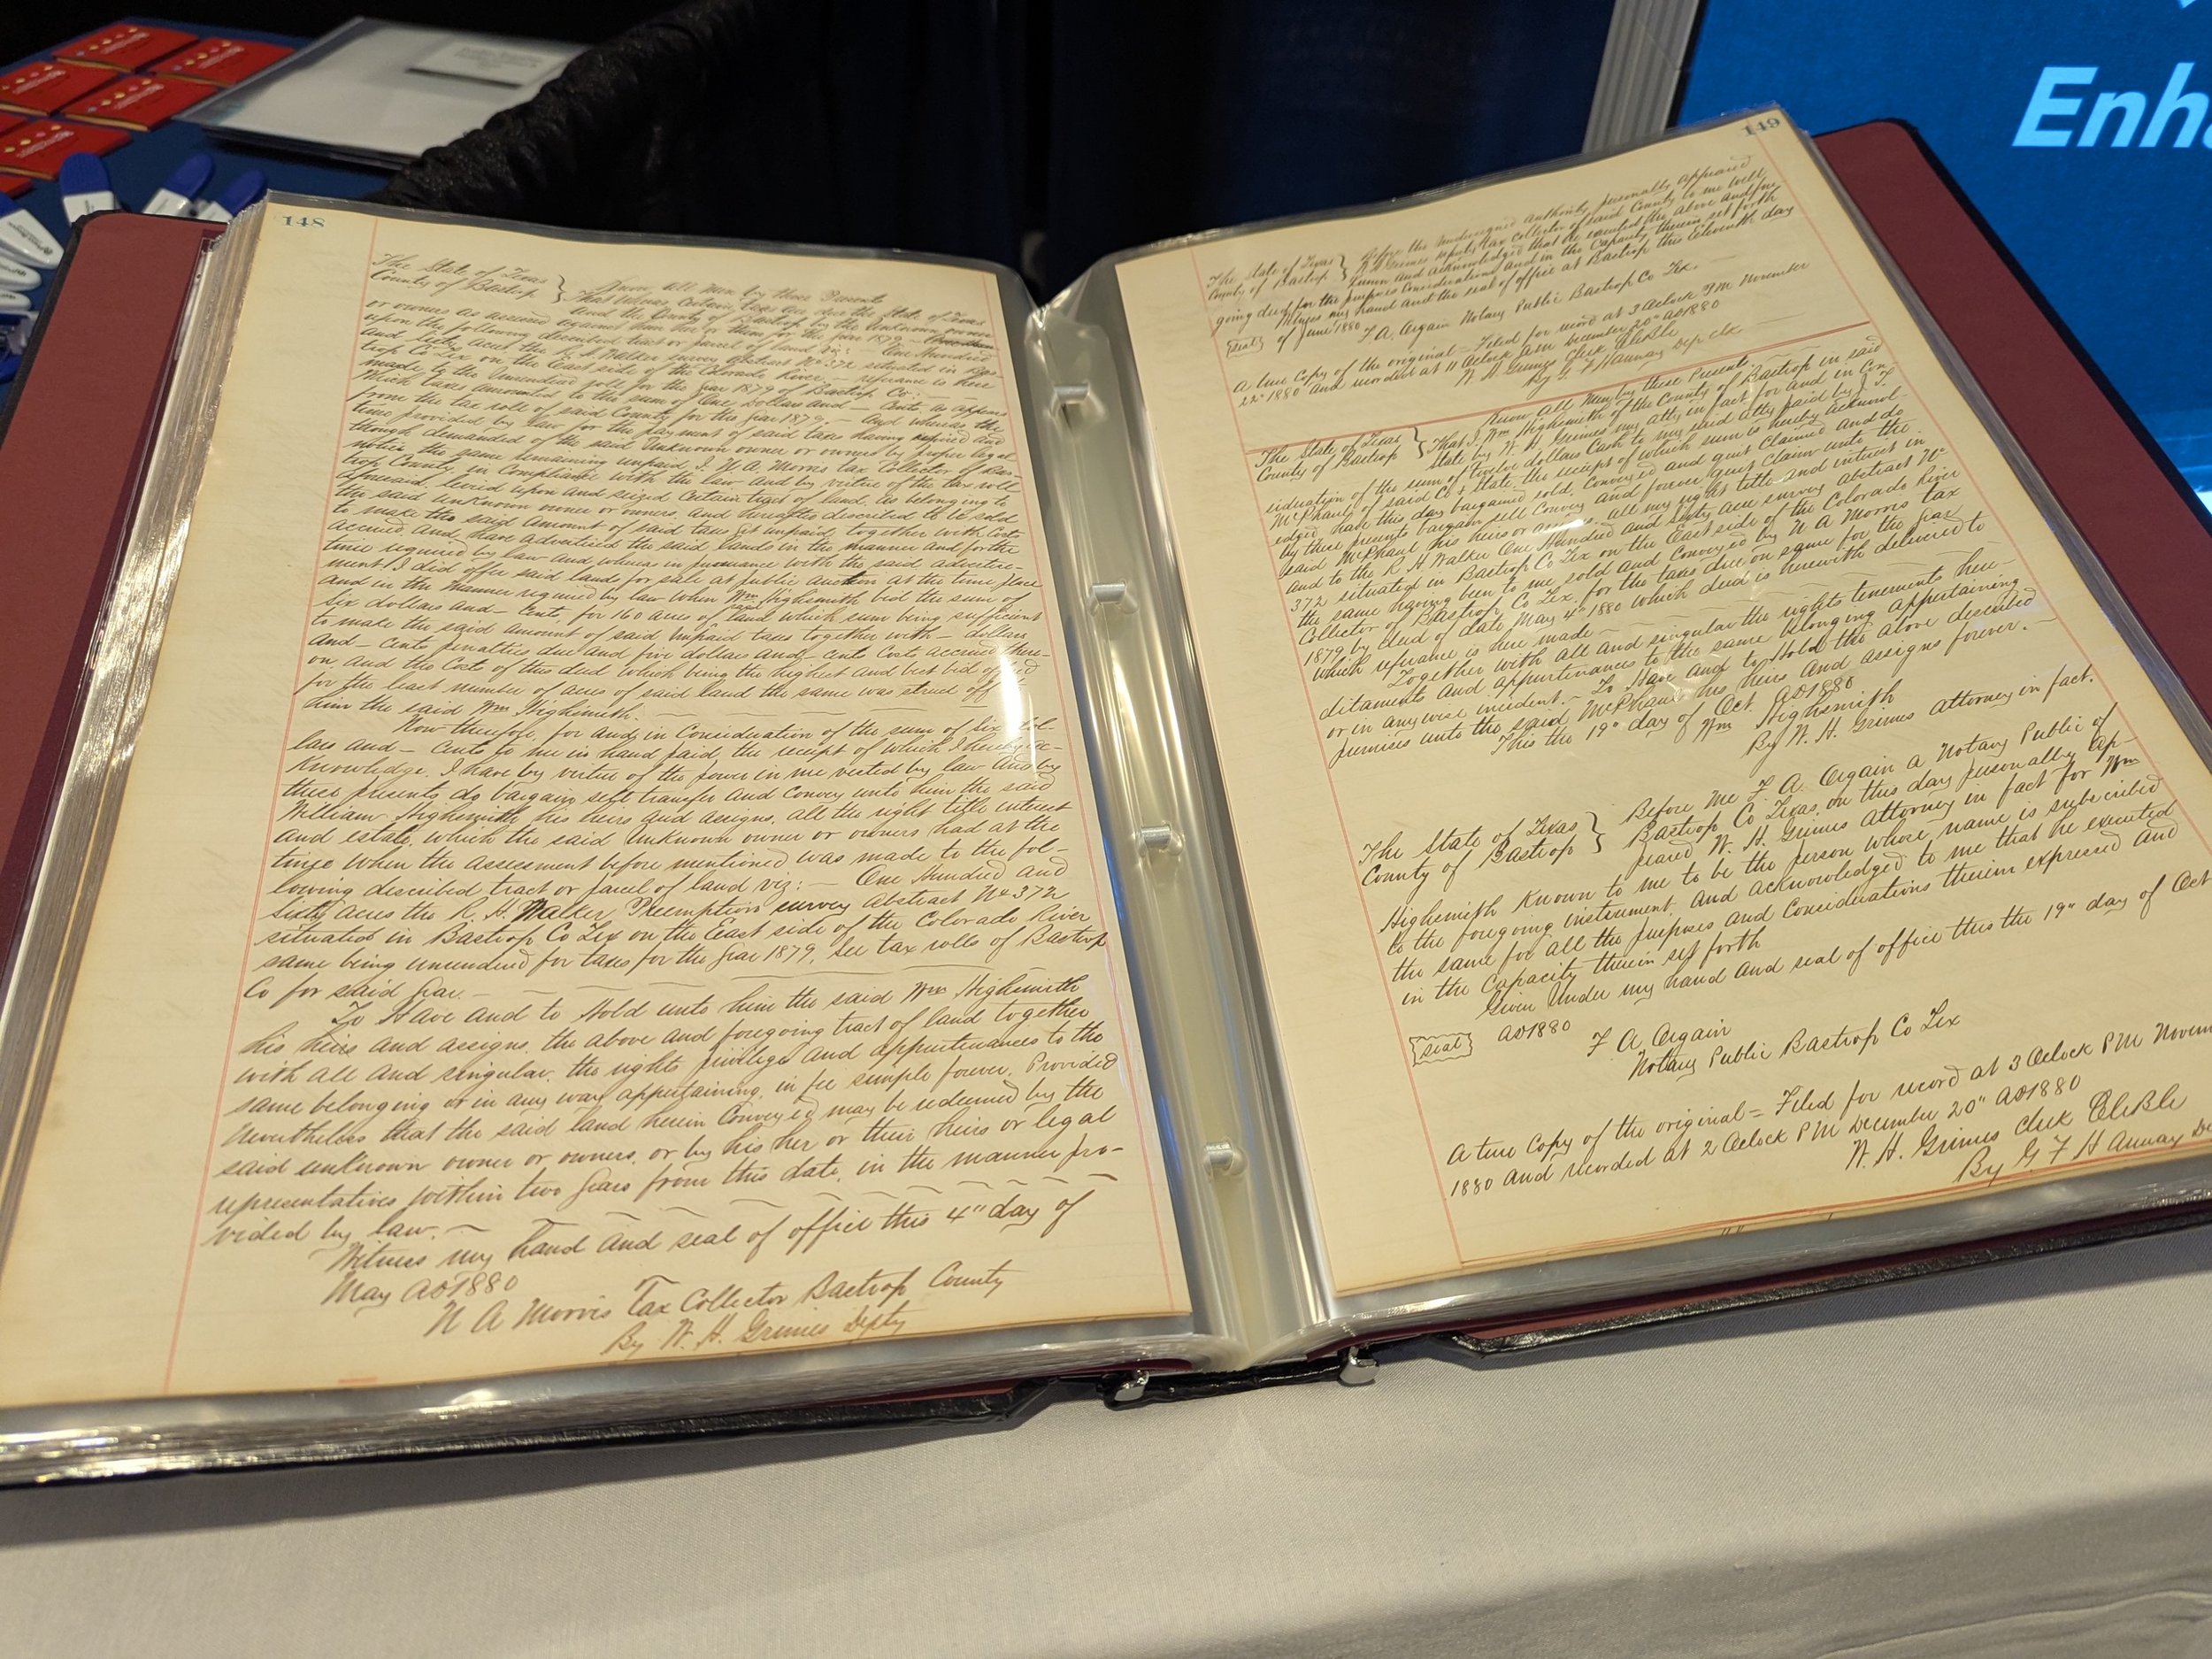 148
The State of Texas } Know all Men by these Presents
County of Bastrop } That Whereas Certain taxes are due the State of Texas
and the County of Bastrop by the Unknown owner
or owners as assessed against him her or them for the year 1879
upon the following described tract or parcel of land viz: — One Hundred
and sixty acres the R. H. Walker survey abstract No 372 situated in Bas-
trop Co Tex on the East side of the Colorado River. — referance is here
made to the Unrendered roll for the year 1879 of Bastrop Co. —
Which taxes amounted to the sum of One Dollars and — Cents as appears
from the tax roll of said County for the year 1879. — And whereas the
time provided by law for the payment of said taxes having expired and
though demanded of the said Unknown owner or owners by proper legal
notice the same remaining unpaid I, N. A. Morris tax Collector of Bas-
trop County, in Compliance with the law and by virtue of the tax roll
aforesaid, levied upon and seized Certain tract of land, as belonging to
the said unknown owner or owners, and hereafter described to be sold
to make the said amount of said taxes yet unpaid, together with Costs
accrued, and have advertised the said lands in the manner and for the
time required by law and whereas in pursuance with the said advertise-
ment I did offer said lands for sale at public auction at the time place
and in the manner required by law when Wm Highsmith bid the sum of
Six dollars and — Cents, for 160 acres of land which sum being sufficient
to make the said amount of said unpaid taxes together with — dollars
and — cents penalties due and five dollars and — cents Costs accrued there-
on, and the Costs of this deed which being the highest and best bid offered
for the least number of acres of said land the same was struck off
him the said Wm Highsmith. —
Now therefore, for and in Consideration of the sum of Six dol-
lars and — Cents to me in hand paid, the receipt of which I hereby ac-
knowledge, I have by virtue of the power in me vested by law and by
these presents do bargain sell transfer and Convey unto him the said
William Highsmith his heirs and assigns, all the right title interest
and estate, which the said Unknown owner or owners had at the
time when the assessment before mentioned was made to the fol-
lowing described tract or parcel of land viz: — One Hundred and
Sixty acres the R. H. Walker Preemption survey abstract No 372
situated in Bastrop Co Tex on the East side of the Colorado River
same being unrendered for taxes for the year 1879, see tax rolls of Bastrop
Co for said year. —
To Have and to Hold unto him the said Wm Highsmith
his heirs and assigns, the above and foregoing tract of land together
with all and singular, the rights privileges and appurtenances to the
same belonging or in any way appertaining, in fee simple forever. Provided
nevertheless that the said land herein Conveyed may be redeemed by the
said unknown owner or owners, or by his her or their heirs or legal
representatives within two years from this date, in the manner pro-
vided by law. —
Witness my hand and seal of office this 4" day of
May AD 1880
N A Morris Tax Collector Bastrop County
By W. H. Grimes Depty
149
The State of Texas } Before the undersigned authority personally appeared
County of Bastrop } W H Grimes deputy tax Collector of said County to me well
known and acknowledged that he executed the above and fore
going deed for the purposes Considerations and in the Capacity therein set forth
Witness my hand and the seal of office at Bastrop this eleventh day
{seal} of June 1880
F. A. Orgain Notary Public Bastrop Co Tex. —
A true Copy of the original = Filed for record at 3 Oclock P.M November
22" 1880 and recorded at 11 Oclock A M December 20" AD 1880
W H Grimes Clerk CCBC
By G F Hannay Dep clk
The State of Texas } Know All Men by these Presents
County of Bastrop } That I, Wm Highsmith of the County of Bastrop in said
State by W. H. Grimes my atty in fact for and in Con
sideration of the sum of Twelve dollars Cash to my said atty paid by J. T.
McPhaul of said Co & State, the receipt of which sum is hereby acknowl-
edged have this day bargained sold, Conveyed and quit Claimed and do
by these presents bargain sell Convey and forever quit Claim unto the
said McPhaul his heirs or assigns, all my right title and interest in
and to the R H Walker One Hundred and sixty acre survey abstract No
372 situated in Bastrop Co Tex on the East side of the Colorado River
the same having been to me sold and Conveyed by N A Morris tax
Collector of Bastrop Co Tex. for the taxes due on same for the year
1879 by deed of date May 4th 1880 which deed is herewith delivered to
which referance is here made —
Together with all and singular the rights tenements here-
ditaments and appurtenances to the same belonging appertaining
or in anywise incident. — To Have and to Hold the above described
premises unto the said McPhaul his heirs and assigns forever. —
This the 19" day of Oct. AD 1880
Wm Highsmith
By W. H. Grimes Attorney in fact.
The State of Texas } Before Me F. A. Orgain a Notary Public of
County of Bastrop } Bastrop Co Texas, on this day personally ap-
peared W. H. Grimes Attorney in fact for Wm
Highsmith Known to me to be the person whose name is subscribed
to the foregoing instrument, and acknowledged to me that he executed
the same for all the purposes and Considerations therein expressed and
in the Capacity therein set forth
Given Under my hand and seal of office this the 19" day of Oct
{seal} AD 1880
F A Orgain
Notary Public Bastrop Co Tex
A true Copy of the original = Filed for record at 3 Oclock P M
1880 and recorded at 2 Oclock P M December 20" AD 1880
W. H. Grimes Clerk CCBC
By G F Hannay
Enh